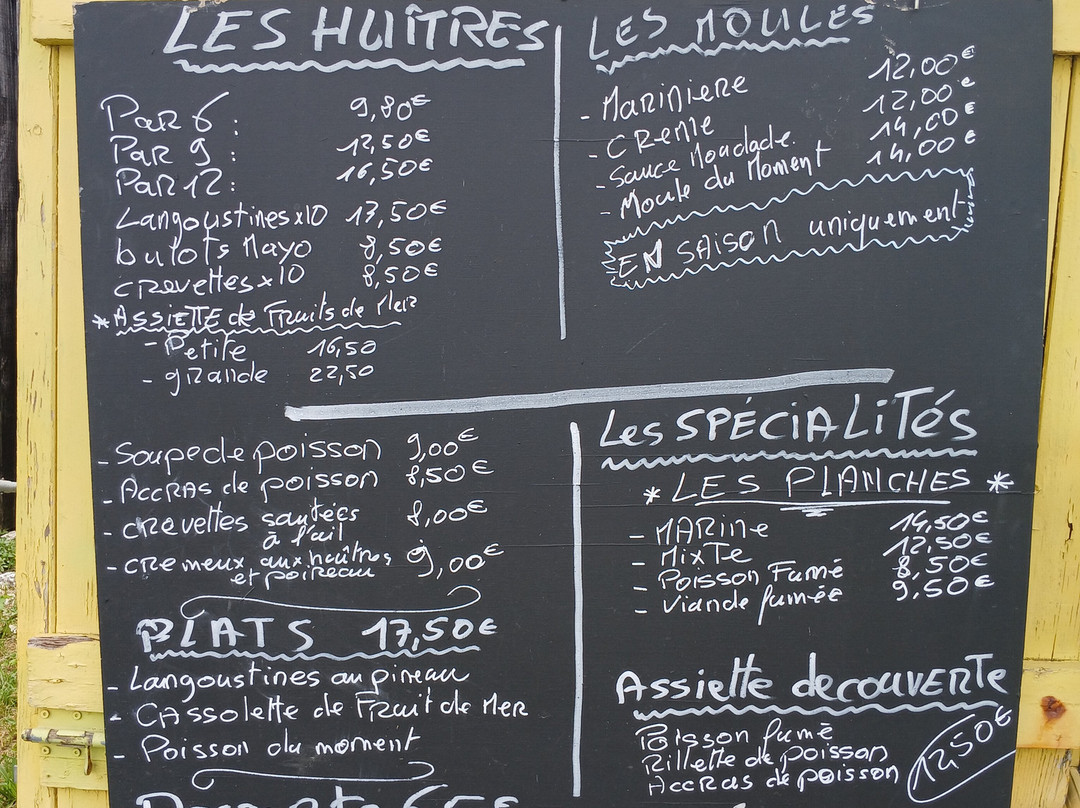 LES HUÎTRES
Par 6 : 9,80€
Par 9 : 12,50€
Par 12 : 16,50€
Langoustines x10 13,50€
bulots Mayo 8,50€
crevettes x10 8,50€
* ASSIETTE de Fruits de Mer
- Petite 16,50
- grande 22,50
LES MOULES
- Mariniere 12,00€
- Creme 12,00€
- Sauce Mouclade. 14,00€
- Moule du Moment 14,00€
EN SAISON uniquement
- Soupe de poisson 9,00€
- Accras de poisson 8,50€
- crevettes sautées 8,00€
à l'ail
- cremeux aux huîtres 9,00€
et poireau
PLATS 17,50€
- Langoustines au pineau
- CAssolette de Fruit de Mer
- Poisson du moment
Les SPÉCIALITÉS
* LES PLANCHES *
- MARine 14,50€
- MixTe 12,50€
- Poisson Fumé 8,50€
- Viande fumée 9,50€
Assiette decouverte
Poisson fumé
Rillette de poisson
Accras de poisson 12,50€